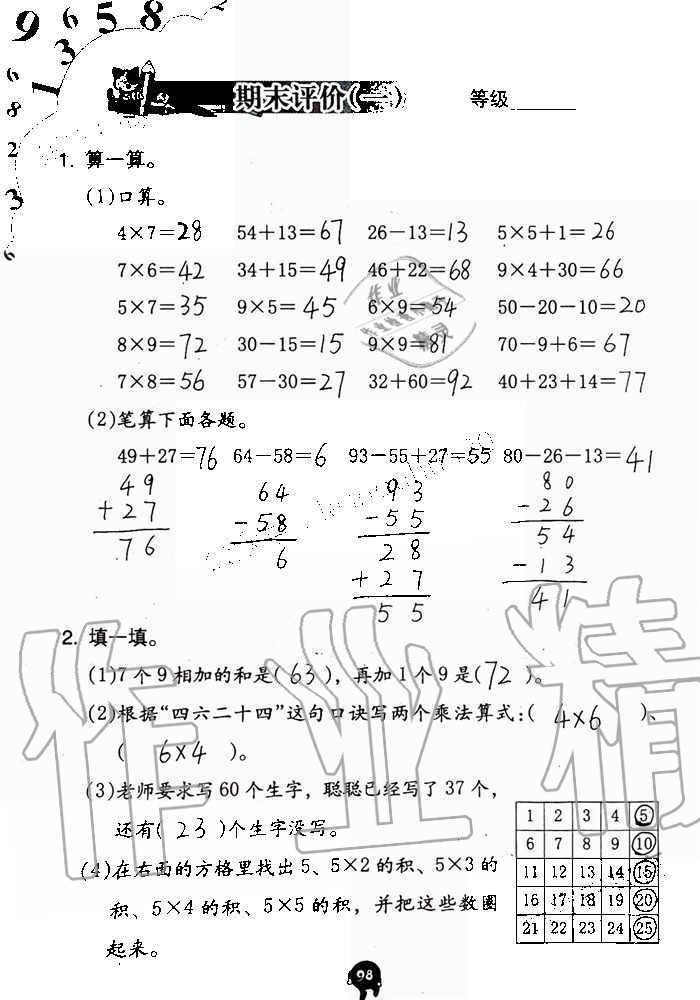 9 6 5 8
1 3
6
8
2
3
6
期末评价(一) 等级______
1. 算一算。
(1)口算。
4×7=28 54+13=67 26-13=13 5×5+1=26
7×6=42 34+15=49 46+22=68 9×4+30=66
5×7=35 9×5=45 6×9=54 50-20-10=20
8×9=72 30-15=15 9×9=81 70-9+6=67
7×8=56 57-30=27 32+60=92 40+23+14=77
(2)笔算下面各题。
49+27=76 64-58=6 93-55+27=55 80-26-13=41
49 64 93 80
+27 -58 -55 -26
76 6 28 54
+27 -13
55 41
2. 填一填。
(1)7个9相加的和是(63),再加1个9是(72)。
(2)根据“四六二十四”这句口诀写两个乘法算式:( 4×6 )、
( 6×4 )。
(3)老师要求写60个生字,聪聪已经写了37个,
还有(23)个生字没写。
(4)在右面的方格里找出5、5×2的积、5×3的
积、5×4的积、5×5的积,并把这些数圈
起来。
1 2 3 4 5
6 7 8 9 10
11 12 13 14 15
16 17 18 19 20
21 22 23 24 25
98
作业精